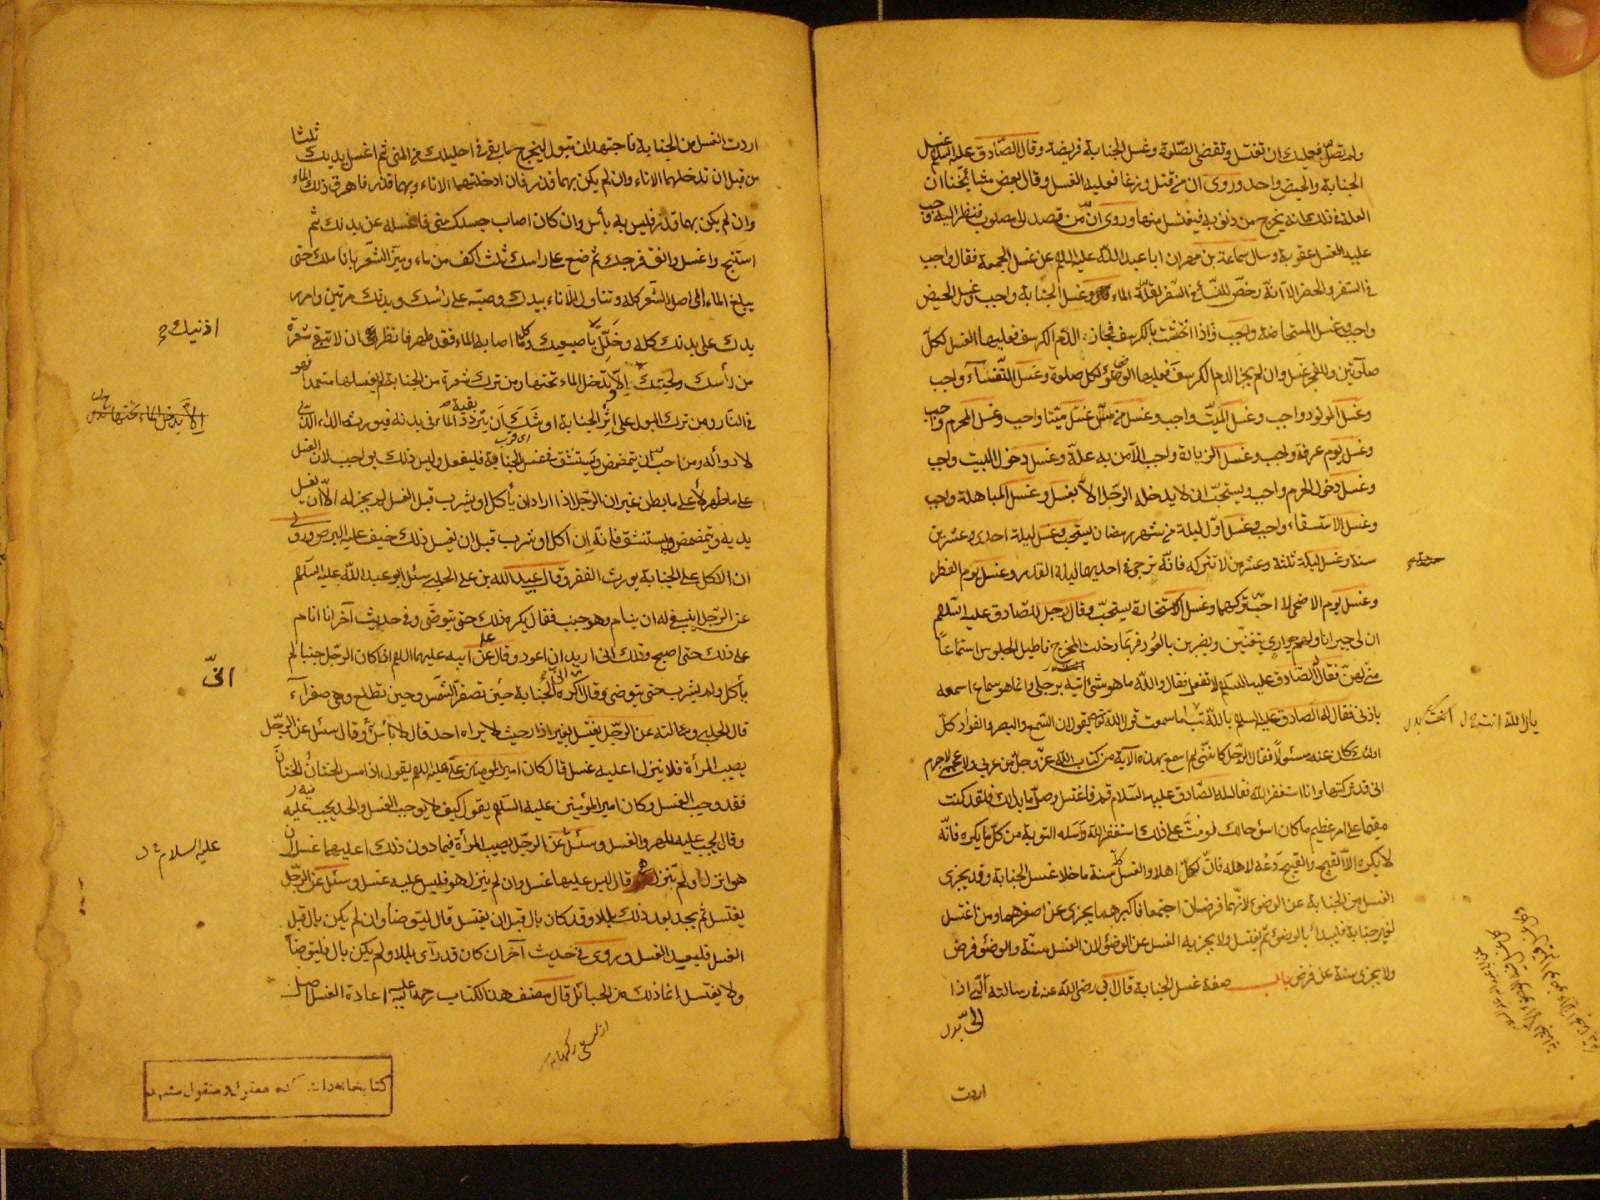 ولم تصل فعليك ان تغتسل وتقضى الصلوة وغسل الجنابة فريضة وقال الصادق عليه السلام غسل
الجنابة والحيض واحد وروى ان من قتل وزغا فعليه الغسل وقال بعض مشايخنا ان
العلة فى ذلك انه يخرج من ذنوبه فيغتسل منها وروى ان من قصد الى مصلوب فنظر اليه وجب
عليه الغسل عقوبة وسال سماعة بن مهران ابا عبد الله عليه السلم عن غسل الجمعة فقال واجب
فى السفر والحضر الا انه رخص للنساء فى السفر لقلة الماء وغسل الجنابة واجب وغسل الحيض
واجب وغسل المستحاضة واجب واذا احتشت بالكرسف فجاز الدم الكرسف فعليها الغسل لكل
صلاتين وللفجر غسل وان لم يجز الدم الكرسف فعليها الوضوء لكل صلوة وغسل النفساء واجب
وغسل المولود واجب وغسل الميت واجب وغسل من غسل ميتا واجب وغسل المحرم واجب
وغسل يوم عرفة واجب وغسل الزيارة واجب الا من به علة وغسل دخول البيت واجب
وغسل دخول الحرم واجب ويستحب ان لا يدخله الرجل الا بغسل وغسل المباهلة واجب
وغسل الاستسقاء واجب وغسل اول ليلة من شهر رمضان يستحب وغسل ليلة احدى وعشرين
سنة وغسل ليلة ثلثة وعشرين لا تتركه فانه ترجى فى احديهما ليلة القدر وغسل يوم الفطر
وغسل يوم الاضحى لا احب تركهما وغسل الاستخارة يستحب وقال رجل للصادق عليه السلام
ان لى جيرانا ولهم جوارى يتغنين ويضربن بالعود فربما دخلت المخرج فاطيل الجلوس استماعا
منى لهن فقال الصادق عليه السلم لا تفعل فقال والله ما هو شئ اتيه برجلى وانما هو سماع اسمعه
باذنى فقال له الصادق عليه السلم بالله انت اما سمعت قول الله يقول ان السمع والبصر والفواد كل
اولئك كان عنه مسئولا فقال الرجل كاننى لم اسمع بهذه الآية من كتاب الله عز وجل من عربى ولا عجمى لا جرم
انى قد تركتها وانا استغفر الله فقال له الصادق عليه السلام قم فاغتسل وصل ما بدا لك فلقد كنت
مقيما على امر عظيم ما كان اسوء حالك لو مت على ذلك استغفر الله وسله التوبة من كل ما يكره فانه
لا يكره الا القبيح والقبيح دعه لاهله فان لكل اهلا والغسل كله سنة ما خلا غسل الجنابة وقد يجزى
الغسل من الجنابة عن الوضوء لانهما فرضان اجتمعا فاكبرهما يجزى عن اصغرهما ومن اغتسل
لغير جنابة فليبدا بالوضوء ثم يغتسل ولا يجزيه الغسل عن الوضوء لان الغسل سنة والوضوء فرض
ولا يجزى سنة عن فرض باب صفة غسل الجنابة قال ابى رضى الله عنه فى رسالته الى اذا
اردت
اردت الغسل من الجنابة فاجتهد ان تبول ليخرج ما بقى فى احليلك من المنى ثم اغسل يديك ثلثا
من قبل ان تدخلهما الاناء وان لم يكن بهما قذر فان ادخلتهما الاناء وبهما قذر فاهرق ذلك الماء
وان لم يكن بهما قذر فليس به بأس وان كان اصاب جسدك منى فاغسله عن بدنك ثم
استنج واغسل وانق فرجك ثم ضع على راسك ثلث اكف من ماء وميز الشعر باناملك حتى
يبلغ الماء الى اصل الشعر كله وتناول الاناء بيدك وصبه على رأسك وبدنك مرتين وامرر
يدك على بدنك كله وخلل باصبعيك وكلما اصابه الماء فقد طهر فانظر ان لا تبقى شعرة
من رأسك ولحيتك الا ويدخل الماء تحتها ومن ترك شعرة من الجنابة لم يغسلها متعمدا فهو
فى النار ومن ترك البول على اثر الجنابة اوشك ان يتردد بقية الماء فى بدنه فيورثه الداء الذى
لا دواء له ومن احب ان يتمضمض ويستنشق فى غسل الجنابة فليفعل وليس ذلك بواجب لان الغسل
على ما ظهر لا على ما بطن غير ان الرجل اذا اراد ان يأكل او يشرب قبل الغسل لم يجز له الا ان يغسل
يديه ويتمضمض ويستنشق فانه ان اكل او شرب قبل ان يفعل ذلك خيف عليه البرص وروى
ان الاكل على الجنابة يورث الفقر وقال عبيد الله بن على الحلبى سئل ابو عبد الله عليه السلام
عن الرجل اينبغى له ان ينام وهو جنب فقال يكره ذلك حتى يتوضى وفى حديث آخر انا انام
على ذلك حتى اصبح وذلك انى اريد ان اعود وقال عن ابيه عليهما السلم اذا كان الرجل جنبا لم
يأكل ولم يشرب حتى يتوضى وقال اكره الجنابة حين تصفر الشمس وحين تطلع وهى صفراء
قال الحلبى وسالته عن الرجل يغتسل بغير ازار حيث لا يراه احد قال لا بأس وقال سئل عن الرجل
يصيب المرأة فلا ينزل اعليه غسل قال كان امير المؤمنين على عليه السلم يقول اذا مس الختان الختان
فقد وجب الغسل وكان امير المؤمنين عليه السلم يقول كيف لا يوجب الغسل والحد يجب فيه
وقال يجب عليه المهر والغسل وسئل عن الرجل يصيب المرأة فيما دون ذلك اعليها غسل ان
هو انزل ولم تنزل قال ليس عليها غسل وان لم ينزل هو فليس عليه غسل وسئل عن الرجل
يغتسل ثم يجد بعد ذلك بللا وقد كان بال قبل ان يغتسل قال ليتوضأ وان لم يكن بال قبل
الغسل فليعد الغسل وروى فى حديث آخر ان كان قد رآى بللا ولم يكن بال فليتوضأ
ولا يغتسل انما ذلك من الحبائل قال مصنف هذا الكتاب رحمة الله عليه اعادة الغسل اصل
اذنيك
انى
عليه السلام